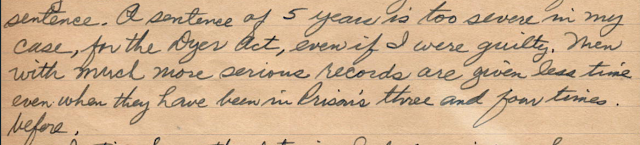 sentence. A sentence of 5 years is too severe in my
case, for the Dyer Act, even if I were guilty. Men
with much more serious records are given less time
even when they have been in Prison's three and four times.
before.